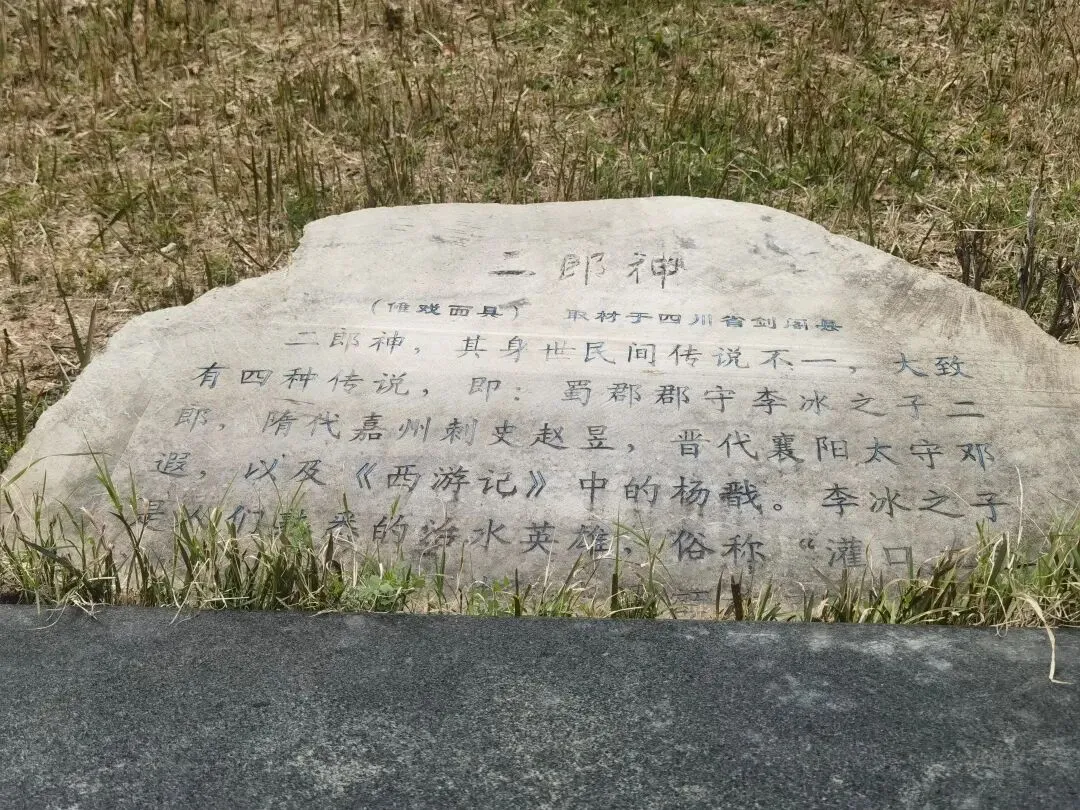 二郎神
（傩戏面具） 取材于四川省剑阁县
二郎神，其身世民间传说不一，大致
有四种传说，即：蜀郡郡守李冰之子二
郎，隋代嘉州刺史赵昱，晋代襄阳太守邓
遐，以及《西游记》中的杨戬。李冰之子
是人们熟悉的治水英雄，俗称“灌口